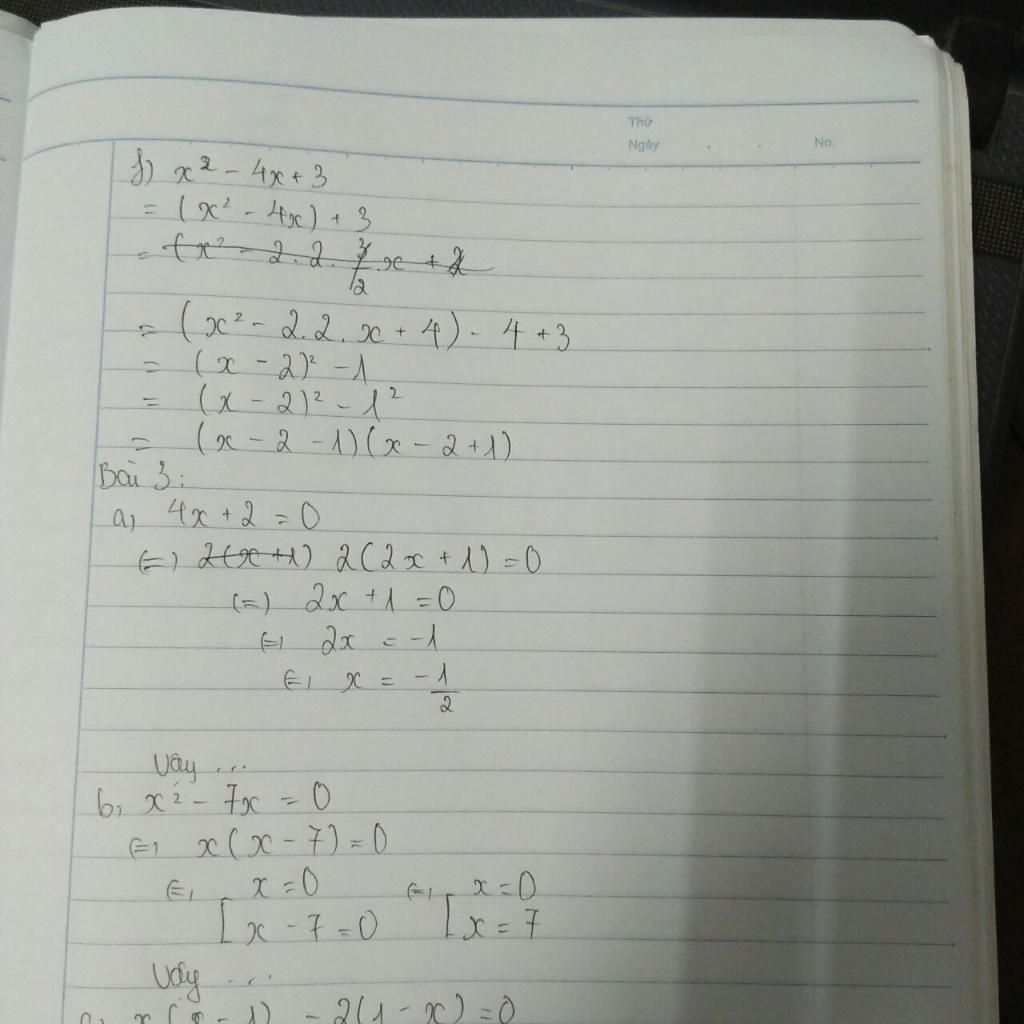 Thứ
Ngày . . No.
f) x² - 4x + 3
= (x² - 4x) + 3
= (x² - 2.2.
= (x² - 2.2.x + 4) - 4 + 3
= (x - 2)² - 1
= (x - 2)² - 1²
= (x - 2 - 1)(x - 2 + 1)
Bài 3:
a, 4x + 2 = 0
(=) 2(x + 1) 2(2x + 1) = 0
(=) 2x + 1 = 0
(=) 2x = -1
(=) x = -1/2
Vậy ...
b, x² - 7x = 0
(=) x(x - 7) = 0
(=) [ x = 0 (=) [ x = 0
x - 7 = 0 x = 7
Vậy ...
x( - 1) - 2(1 - x) = 0